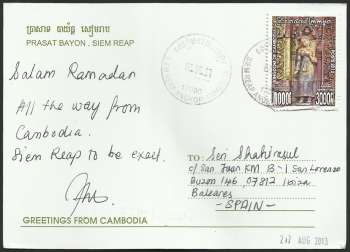 ប្រាសាទ បាយ័ន្ត សៀមរាប
PRASAT BAYON, SIEM REAP
Salam Ramadan
All the way from
Cambodia.
Siem Reap to be exact.
GREETINGS FROM CAMBODIA
3000R
TO: Seri Shahirasul
c/ San Juan KM B-1 San Lorenzo
Buzon 146, 07812 Ibiza
Baleares
- SPAIN -
AUG 2013